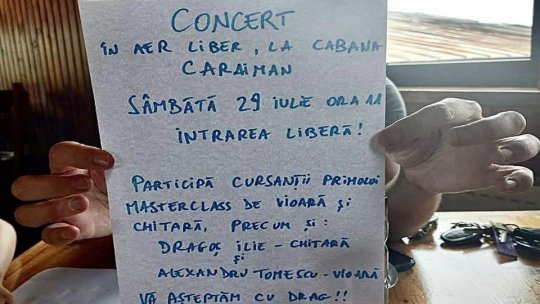 CONCERT
ÎN AER LIBER, LA CABANA
CARAIMAN
SÂMBĂTĂ 29 IULIE ORA 11
INTRAREA LIBERĂ!
PARTICIPĂ CURSANȚII PRIMULUI
MASTERCLASS DE VIOARĂ ȘI
CHITARĂ, PRECUM ȘI:
DRAGOȘ ILIE - CHITARĂ
ȘI
ALEXANDRU TOMESCU - VIOARĂ
VĂ AȘTEPTĂM CU DRAG!!